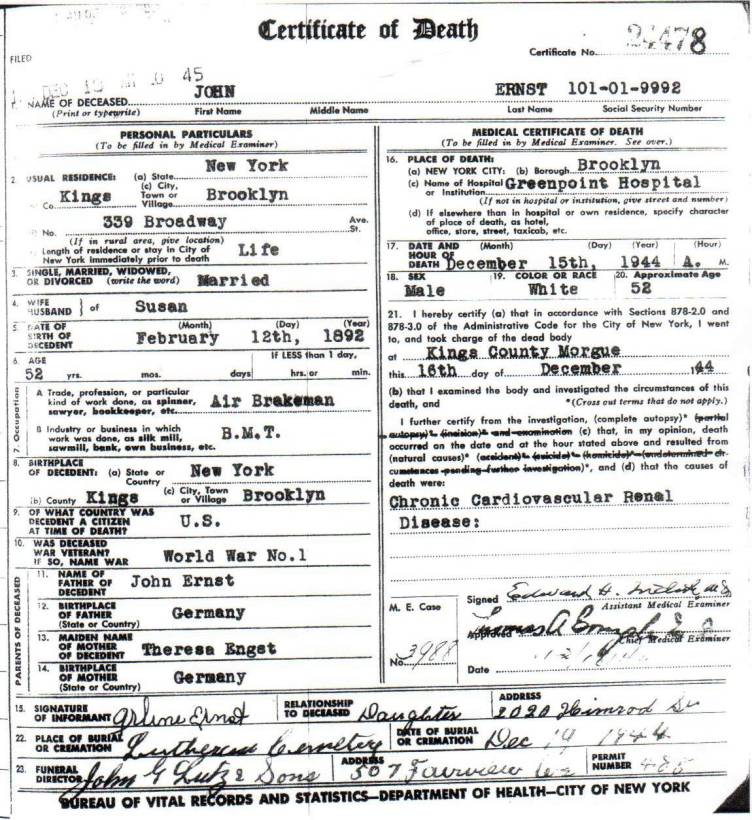 Certificate of Death
Certificate No. 24478
FILED
DEC 19 45
1. NAME OF DECEASED JOHN ERNST 101-01-9992
(Print or typewrite) First Name Middle Name Last Name Social Security Number
PERSONAL PARTICULARS
(To be filled in by Medical Examiner)
2. USUAL RESIDENCE: (a) State New York
Co. Kings (c) City, Town or Village Brooklyn
No. 339 Broadway Ave. St.
(If in rural area, give location)
Length of residence or stay in City of New York immediately prior to death Life
3. SINGLE, MARRIED, WIDOWED, OR DIVORCED (write the word) Married
4. WIFE HUSBAND } of Susan
5. DATE OF BIRTH OF DECEDENT (Month) (Day) (Year) February 12th, 1892
6. AGE If LESS than 1 day,
52 yrs. mos. days hrs. or min.
7. Occupation
A Trade, profession, or particular kind of work done, as spinner, sawyer, bookkeeper, etc. Air Brakeman
B Industry or business in which work was done, as silk mill, sawmill, bank, own business, etc. B.M.T.
8. BIRTHPLACE OF DECEDENT: (a) State or Country New York
(b) County Kings (c) City, Town or Village Brooklyn
9. OF WHAT COUNTRY WAS DECEDENT A CITIZEN AT TIME OF DEATH? U.S.
10. WAS DECEASED WAR VETERAN? IF SO, NAME WAR World War No.1
PARENTS OF DECEASED
11. NAME OF FATHER OF DECEDENT John Ernst
12. BIRTHPLACE OF FATHER (State or Country) Germany
13. MAIDEN NAME OF MOTHER OF DECEDENT Theresa Engst
14. BIRTHPLACE OF MOTHER (State or Country) Germany
MEDICAL CERTIFICATE OF DEATH
(To be filled in by Medical Examiner. See over.)
16. PLACE OF DEATH:
(a) NEW YORK CITY: (b) Borough Brooklyn
(c) Name of Hospital or Institution Greenpoint Hospital
(If not in hospital or institution, give street and number)
(d) If elsewhere than in hospital or own residence, specify character
of place of death, as hotel,
office, store, street, taxicab, etc.
17. DATE AND HOUR OF DEATH (Month) (Day) (Year) (Hour) December 15th, 1944 A. M.
18. SEX 19. COLOR OR RACE 20. Approximate Age
Male White 52
21. I hereby certify (a) that in accordance with Sections 878-2.0 and
878-3.0 of the Administrative Code for the City of New York, I went
to, and took charge of the dead body
at Kings County Morgue
this 16th day of December 1944
(b) that I examined the body and investigated the circumstances of this
death, and *(Cross out terms that do not apply.)
I further certify from the investigation, (complete autopsy)* (partial
autopsy)* (incision)* and examination (c) that, in my opinion, death
occurred on the date and at the hour stated above and resulted from
(natural causes)* (accident)* (suicide)* (homicide)* (undetermined cir-
cumstances pending further investigation)*, and (d) that the causes of
death were:
Chronic Cardiovascular Renal
Disease:
M. E. Case
No. 3988
Signed Edward H.
Assistant Medical Examiner
Approved Thomas A
Chief Medical Examiner
Date
15. SIGNATURE OF INFORMANT Arlene Ernst RELATIONSHIP TO DECEASED Daughter ADDRESS 2020 Himrod St
22. PLACE OF BURIAL OR CREMATION Lutheran Cemetery DATE OF BURIAL OR CREMATION Dec 19 1944
23. FUNERAL DIRECTOR John G Lutz & Sons ADDRESS 507 Fairview Ave PERMIT NUMBER 485
BUREAU OF VITAL RECORDS AND STATISTICS—DEPARTMENT OF HEALTH—CITY OF NEW YORK